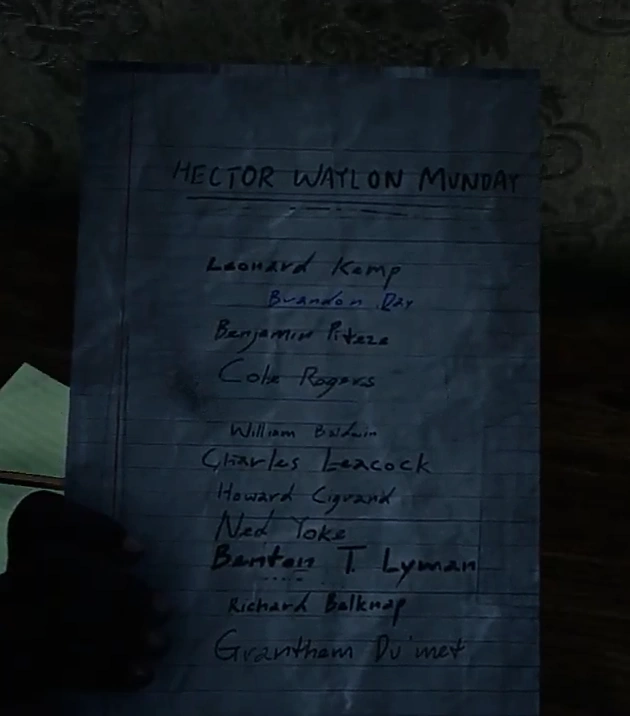 HECTOR WAYLON MUNDAY
Leonard Kemp
Brandon Day
Benjamin Piteze
Cole Rogers
William Baldwin
Charles Leacock
Howard Cigrand
Ned Yoke
Benton T. Lyman
Richard Belknap
Grantham Du'met